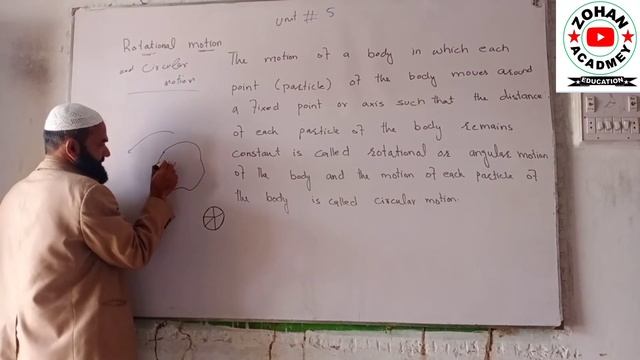 unit # 5
Rotational motion
and circular
motion
The motion of a body in which each
point (particle) of the body moves around
a fixed point or axis such that the distance
of each particle of the body remains
constant is called rotational or angular motion
of the body and the motion of each particle of
the body is called circular motion.
ZOHAN
ACADMEY
EDUCATION